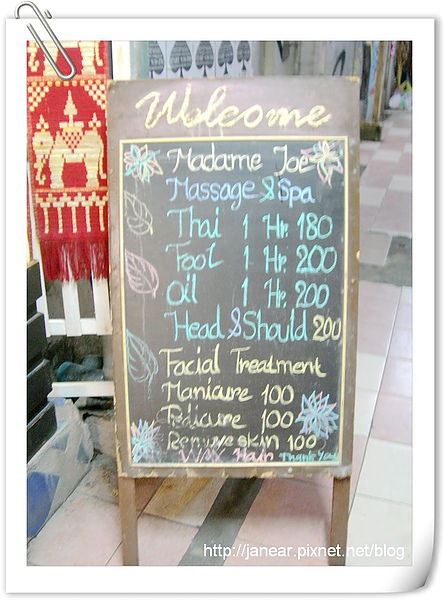 Welcome
Madame Joe
Massage & Spa
Thai 1 Hr. 180
Foot 1 Hr. 200
Oil 1 Hr. 200
Head & Should 200
Facial Treatment
Manicure 100
Pedicure 100
Remove skin 100
WAX Hair Thank You
http://janear.pixnet.net/blog